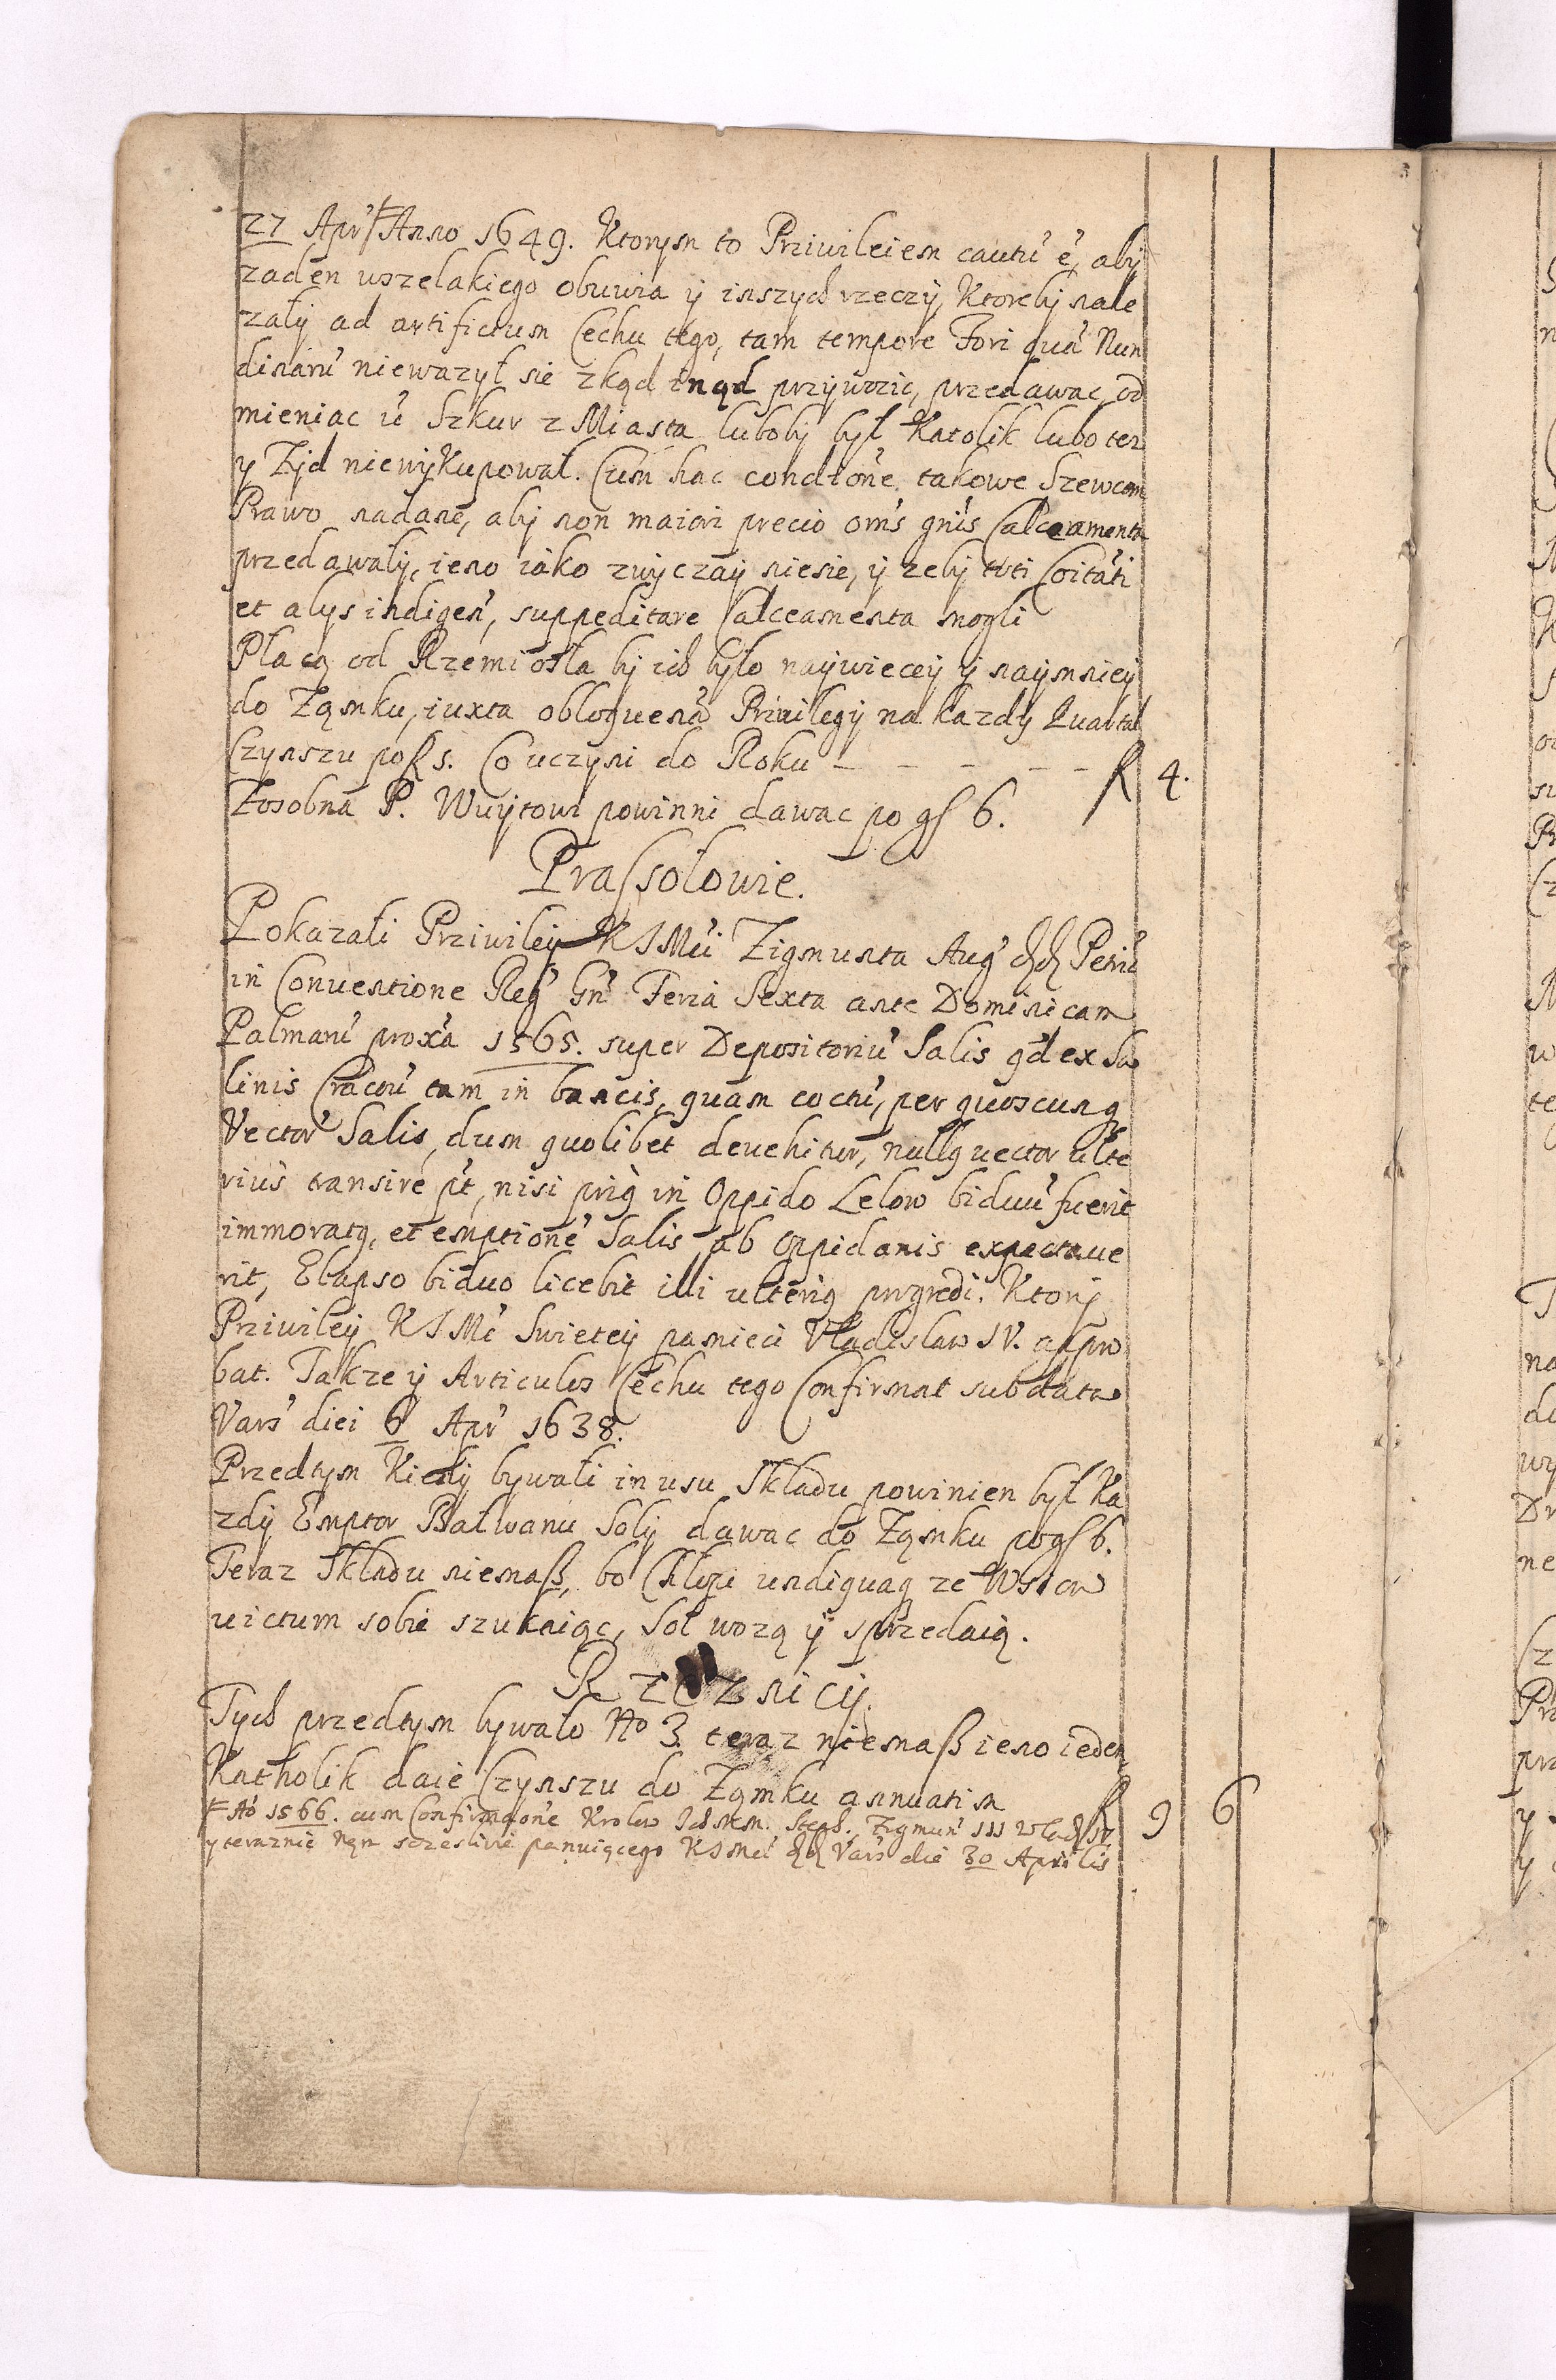 27 Apr' Anno 1649. Ktorym to Priwileiem cautu' e', aby
zaden wszelakiego obuwia y inszych rzeczy, Ktoreby nale
zaly ad artificium Cechu tego, tam tempore Fori qua' Nun
dinaru' niewazył sie zkąd inąd przywozic, przedawac, od
mieniac u' Szkur z Miasta luboby był Katolik lubo tez
y Zyd niewykupował. Cum hac condtone takowe Szewcom
Prawo nadane, aby non maiori precio om's gn'is Calceamenta
przedawaly, ieno iako zwyczay niesie, y zeby toti Coitati
et alys indigen', suppeditare Calceamenta mogli
Płacą od Rzemiosła by ich było naywiecey y naymniey
do Zamku, iuxta obloquena' Privilegij na kazdy Quartal
Czynszu po fl s. Co uczyni do Roku - - - - - fl 4.
Zosobna P. Wuytowi powinni dawac po gſ 6.
Praſsołowie.
Pokazali Priwiley KJMci Zigmunta Aug' dd Petric'
in Conventione Reg' Gn' Feria Sexta ante Dominicam
Palmaru' prox'a 1565. super Depositoriu' Salis qd' ex Sa
linis Cracou' tam in bancis, quam coctu', per quoscunq
Vector' Salis, dum quolibet devehitur, nullq vector ulte
rius transire p't, nisi priq in Oppido Lelow biduu' fuerit
immoratq, et emptione' Salis ab Oppidanis expectaue
rit, Elapso biduo licebit illi ulteriq progredi. Ktory
Priwiley KJMc Swietey pamieci Vladislaw IV. appro
bat. Takze y Articulos Cechu tego Confirmat sub data
Vars' diei 6 Apr' 1638.
Przedtym Kiedy bywali in usu Składu powinien był Ka
zdy Emptor Bałwanu Soly dawac do Zamku po gſ 6.
Teraz Składu niemaß, bo Chłopi undiquaq ze Wsiow
victum sobie szukaiąc, Sol wozą y sprzedaią.
Rzeznicy.
Tych przedtym bywało No 3. teraz niemaß ieno ieden
Katholik daie Czynszu do Zamku annuatim fl 9 6
Ao 1566. cum Confirmatione Krolow Ich Mm. Steph. Zigmun' III Wlad IV.
y teraznie Nam szczesliwie panuiącego KJMci dd Vars die 30 Aprilis